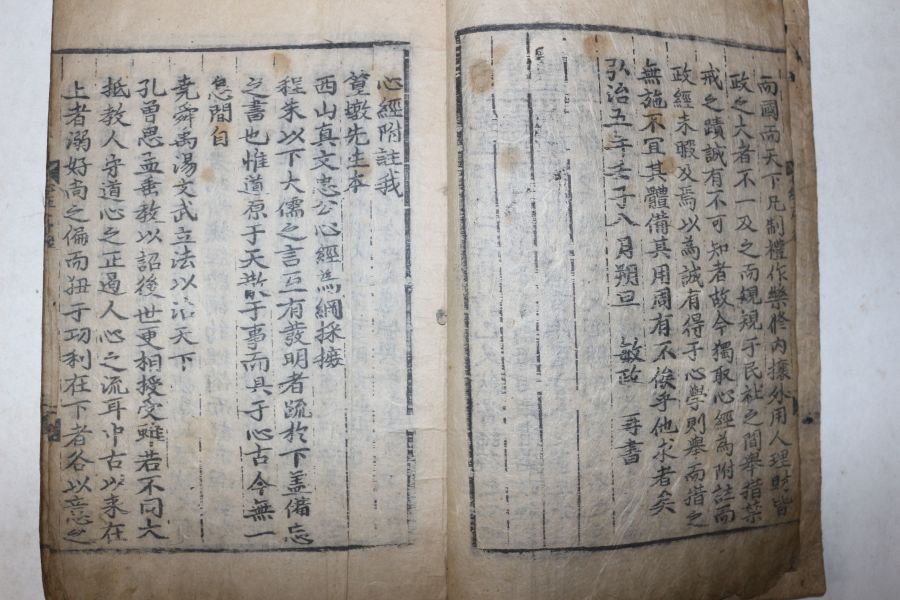 而國而天下凡制禮作樂修內攘外用人理財皆
政之大者不一及之而規規于民社之間舉措禁
戒之蹟誠有不可知者故今獨取心經為附註而
政經未暇及焉以為誠有得于心學則舉而措之
無施不宜其體備其用周有不俟乎他求者矣
弘治五年壬子八月朔旦 敏政 再書
心經附註
篁墩先生本
西山真文忠公心經為綱採掇
程朱以下大儒之言互有發明者疏於下盖備忘
之書也惟道原于天散于事而具于心古今無一
息間自
堯舜禹湯文武立法以治天下
孔曾思孟垂教以詔後世更相授受雖若不同大
抵教人守道心之正遏人心之流耳中古以來在
上者溺好尚之偏而狃于功利在下者各以意之